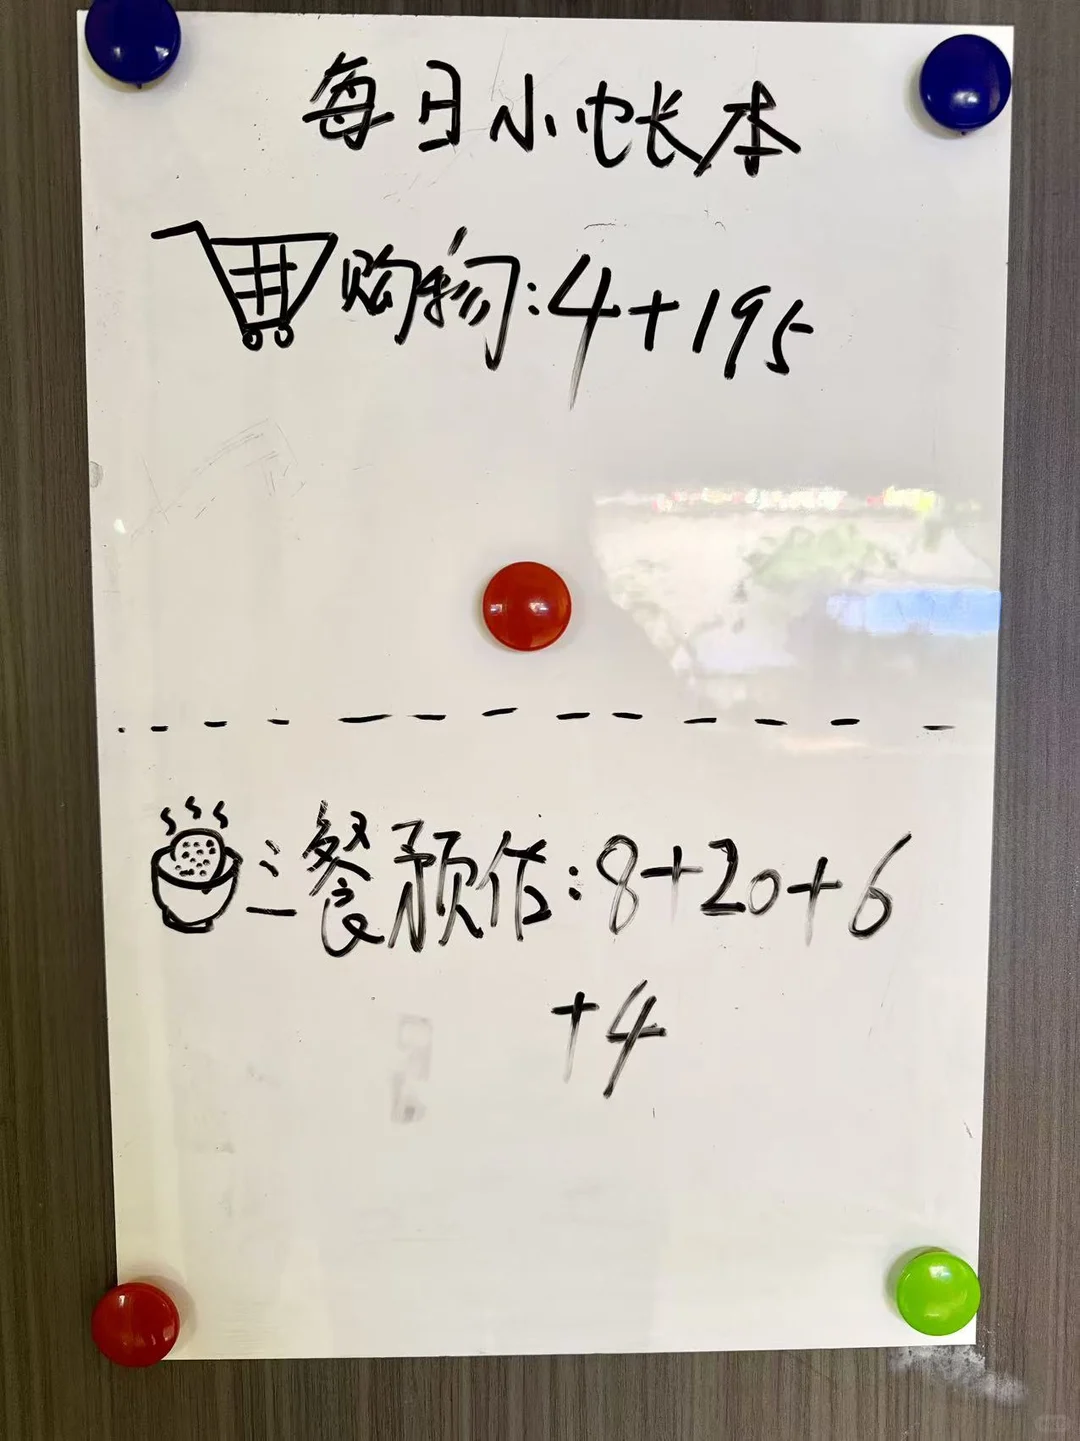 每日小帐本
购物:4+195
三餐预估:8+20+6
+4